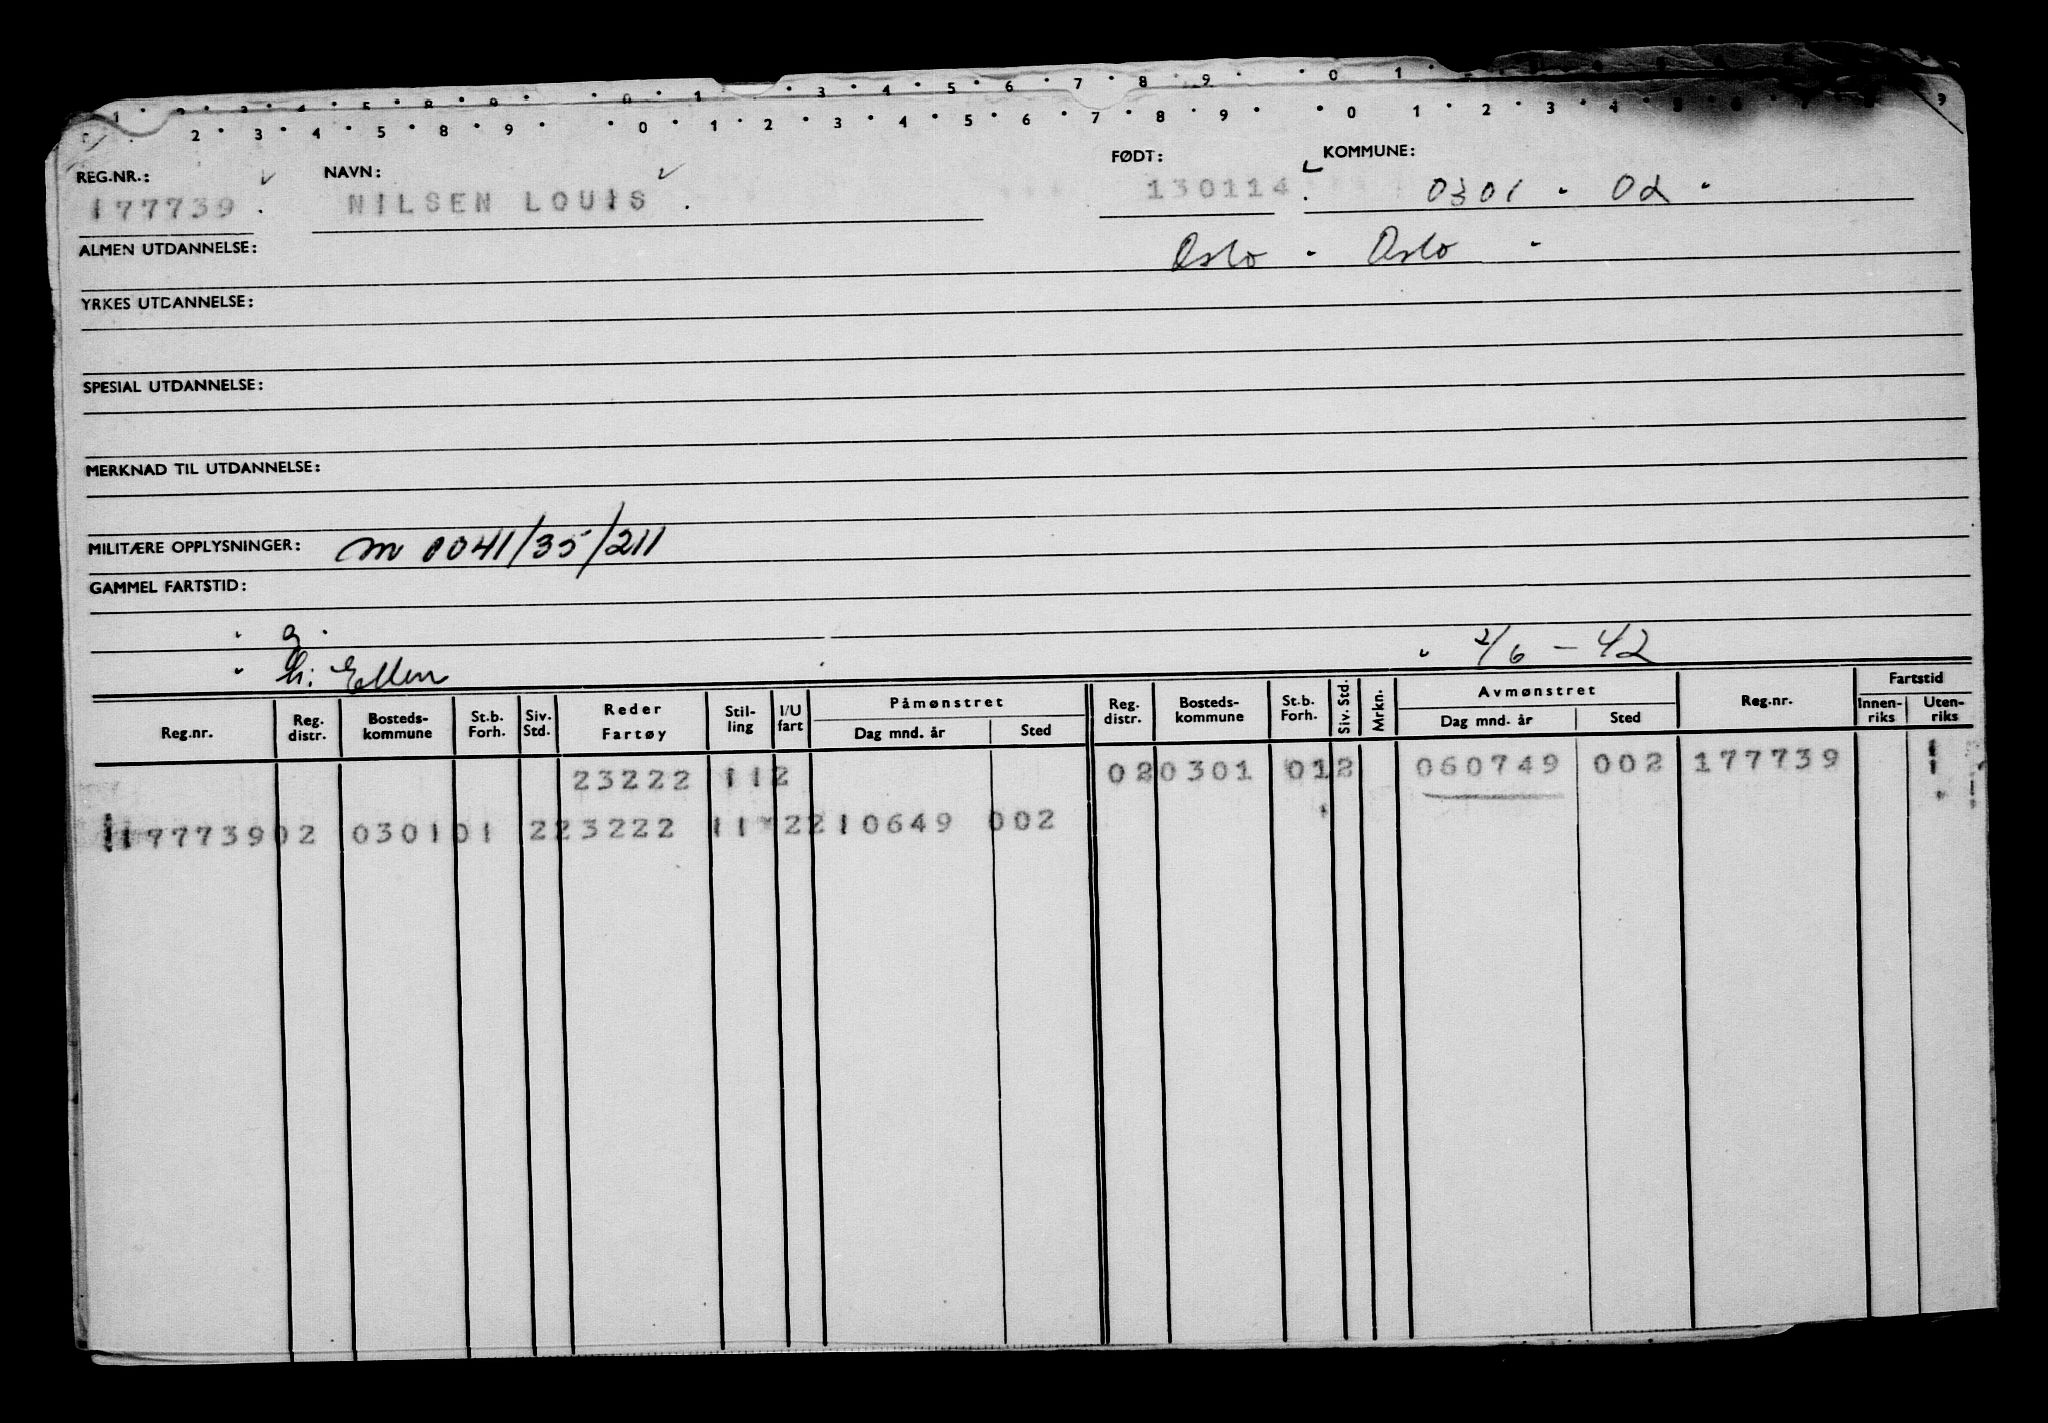 1 2 3 4 5 8 9 0 1 3 4 5 6 7 8 9 0 1
2 3 4 5 8 9 0 1 2 3 4 5 6 7 8 9 0 1 2 3 4 5 6 7 8 9
REG.NR.: NAVN: FØDT: KOMMUNE:
177739 NILSEN LOUIS 130114 0301 - 02
ALMEN UTDANNELSE: Oslo - Oslo -
YRKES UTDANNELSE:
SPESIAL UTDANNELSE:
MERKNAD TIL UTDANNELSE:
MILITÆRE OPPLYSNINGER: m 0041/35/211
GAMMEL FARTSTID:
g.
h: Ellen 2/6 - 42
Reg.nr. Reg. distr. Bosteds-kommune St.b. Forh. Siv. Std. Reder Fartøy Stil-ling I/U fart Påmønstret Dag mnd. år Sted Reg. distr. Bosteds-kommune St.b. Forh. Siv. Std. Mrkn. Avmønstret Dag mnd. år Sted Reg.nr. Fartstid Innen-riks Uten-riks
23222 11 2 02 0301 01 2 060749 002 177739 1
177739 02 0301 01 2 23222 11 2 210649 002